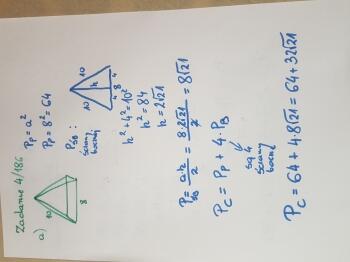 Zadanie 4/186
a)
10
8
Pp = a²
Pp = 8² = 64
PśB :
ściany
bocznej
10 10
h
4 4
8
h² + 4² = 10²
h² = 84
h = 2√21
PśB = a·h/2 = 8·2√21/2 = 8√21
Pc = Pp + 4·PB
są 4
ściany
boczne
Pc = 64 + 4·8√21 = 64 + 32√21